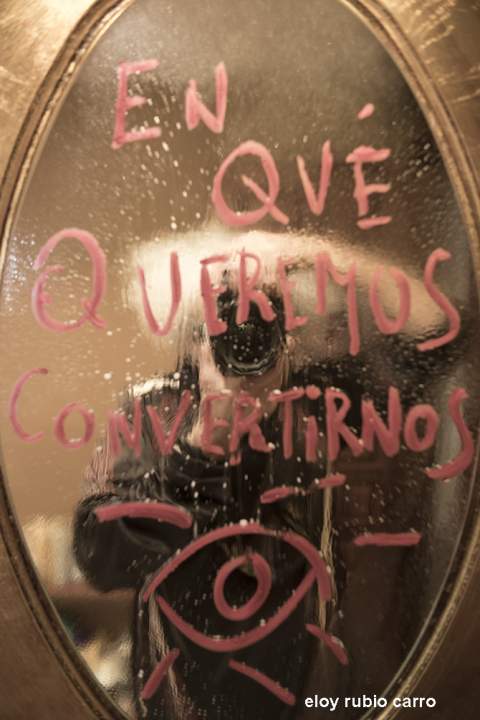 EN
QUÉ
QUEREMOS
CONVERTIRNOS
eloy rubio carro